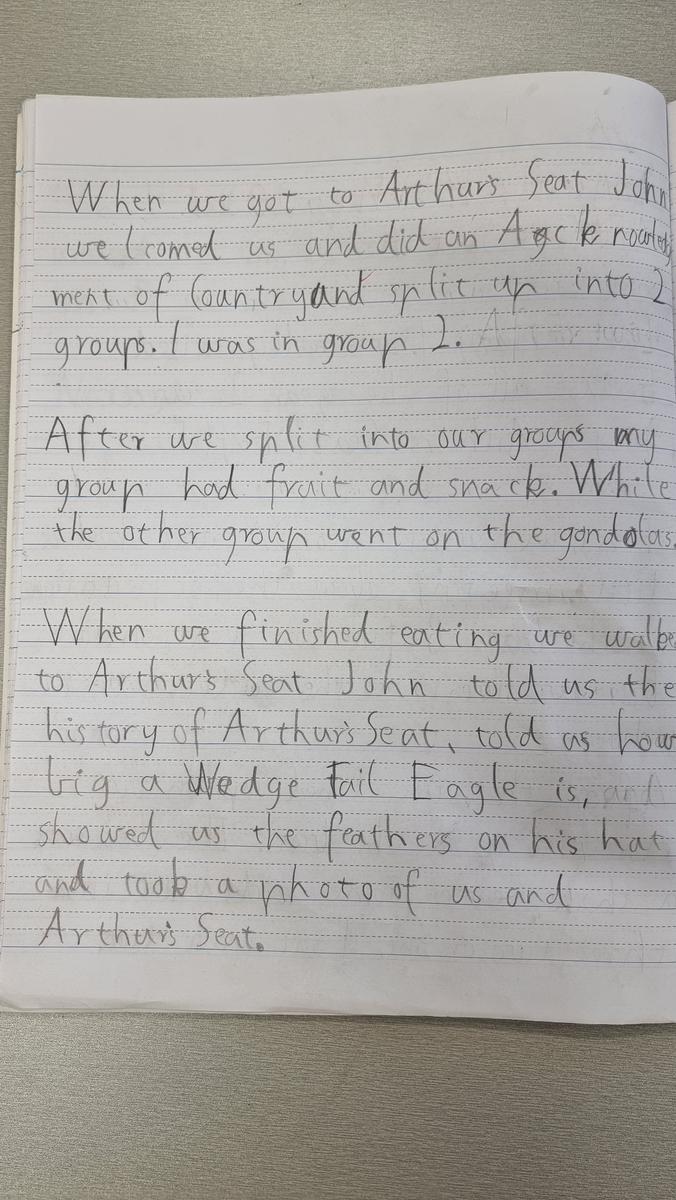 When we got to Arthur's Seat John
welcomed us and did an Agcknowledg
ment of Country and split up into 2
groups. I was in group 2.
After we split into our groups my
group had fruit and snack. While
the other group went on the gondolas.
When we finished eating we walke
to Arthur's Seat John told us the
history of Arthur's Seat, told us how
big a Wedge Tail Eagle is,
showed us the feathers on his hat
and took a photo of us and
Arthur's Seat.